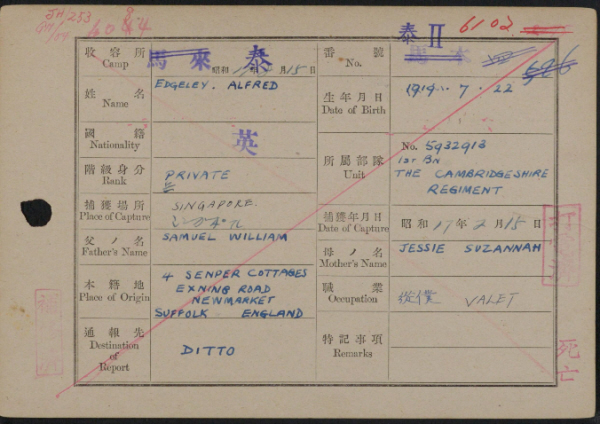 JH 253
6102
泰 II
收容所 Camp 馬來 泰
昭和 年 月 15日
番號 No.
姓名 Name EDGELEY. ALFRED
生年月日 Date of Birth 1919. 7. 22
國籍 Nationality 英
所屬部隊 Unit No. 5932913
1ST BN
THE CAMBRIDGESHIRE
REGIMENT
階級身分 Rank PRIVATE
捕獲場所 Place of Capture SINGAPORE.
捕獲年月日 Date of Capture 昭和 17年 2月 15日
父ノ名 Father's Name SAMUEL WILLIAM
母ノ名 Mother's Name JESSIE SUZANNAH
本籍地 Place of Origin 4 SENPER COTTAGES
EXNING ROAD
NEWMARKET
SUFFOLK ENGLAND
職業 Occupation 從僕 VALET
通報先 Destination of Report DITTO
特記事項 Remarks
死亡